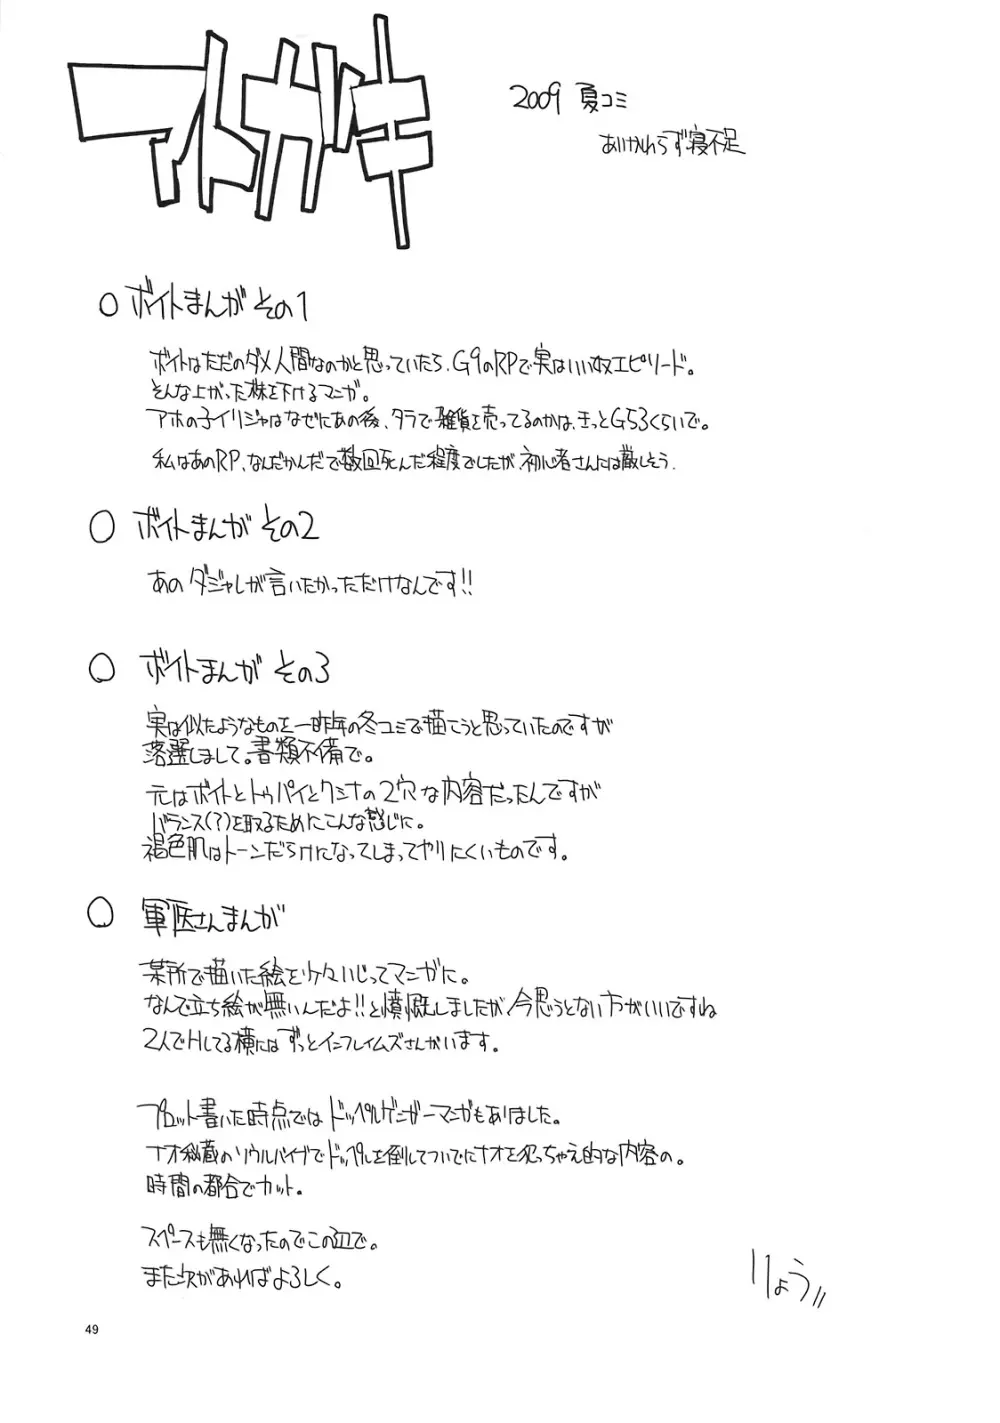 アトガキ
2009 夏コミ
あいかわらず寝不足
○ ボイトまんが その1
ボイトはただのダメ人間なのかと思っていたら、G9のRPで実はいい奴エピソード。
そんな上がった株を下げるマンガ。
アホの子イリジャはなぜにあの後、タラで雑貨を売ってるのかは、きっとG53くらいで。
私はあのRP、なんだかんだで数回死んだ程度でしたが、初心者さんには厳しそう.
○ ボイトまんが その2
あの ダジャレが言いたかっただけなんです!!
○ ボイトまんが その3
実は似たようなものを一昨年の冬コミで描こうと思っていたのですが
落選しまして。書類不備で。
元はボイトとトゥパイとクシナの2穴な内容だったんですが
バランス(?)を取るためにこんな感じに。
褐色肌はトーンだらけになってしまってやりにくいものです。
○ 軍医さんまんが
某所で描いた絵を少々いじってマンガに。
なんで立ち絵が無いんだよ!!と憤慨しましたが、今思うとない方がいいですね
2人でHしてる横にはずっとインフレイムズさんがいます。
プロット書いた時点ではドッペルゲンガーマンガもありました。
ナオ秘蔵のソウルバイブでドッペルを倒してついでにナオを犯っちゃえ的な内容の。
時間の都合でカット。
スペースも無くなったのでこの辺で。
また次があればよろしく。
りょう〃
49